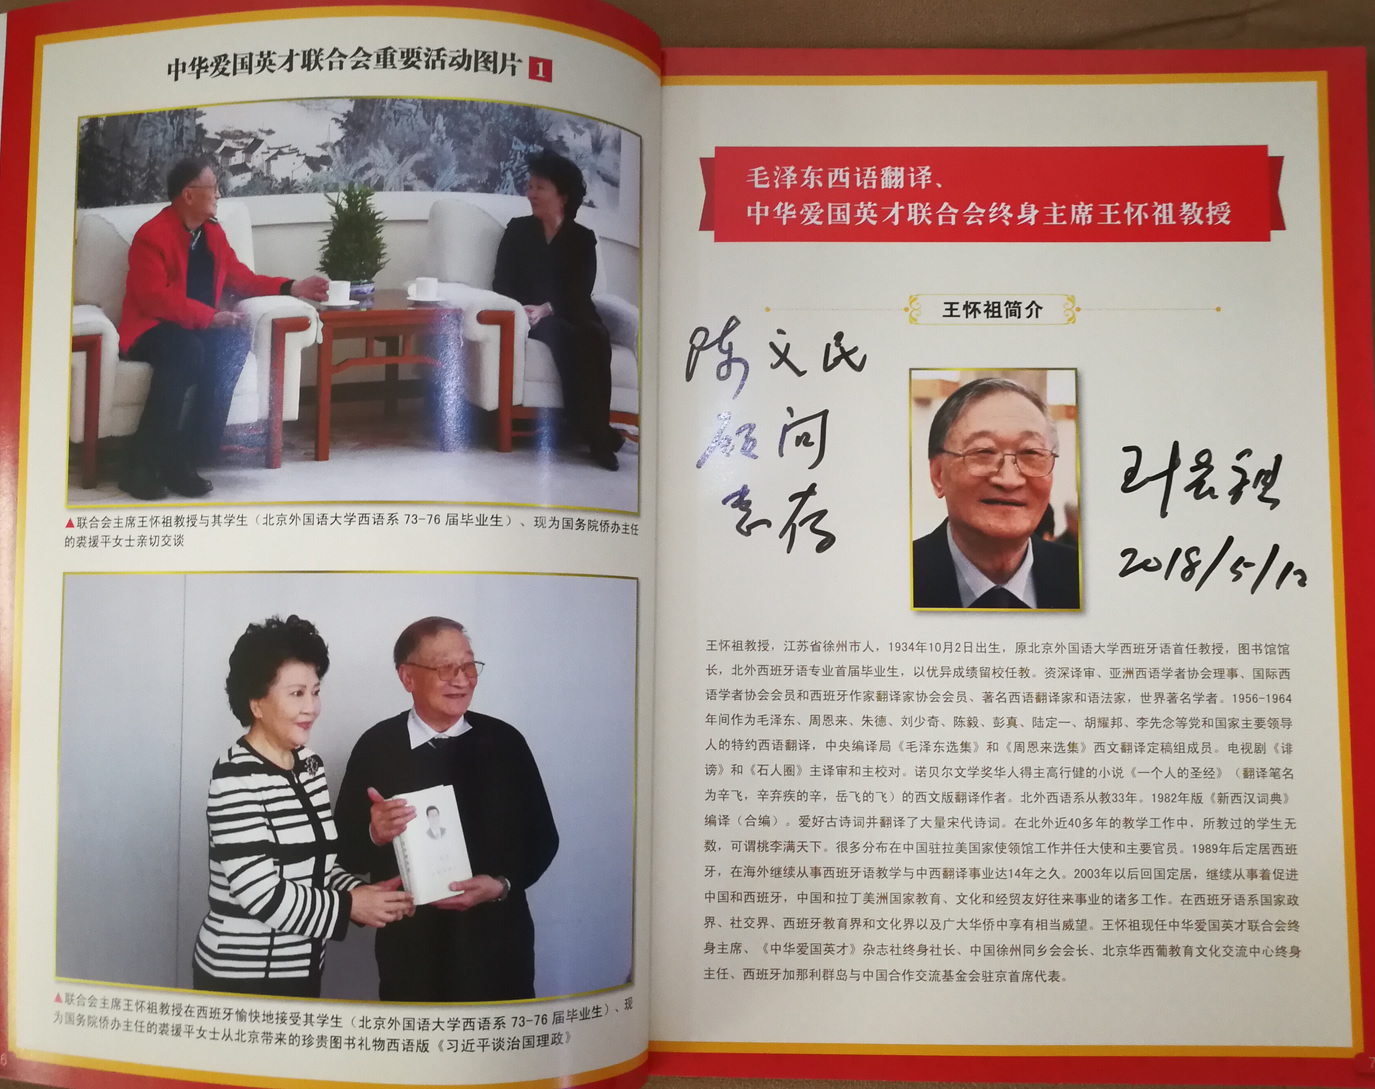 中华爱国英才联合会重要活动图片 1
▲联合会主席王怀祖教授与其学生（北京外国语大学西语系 73-76 届毕业生）、现为国务院侨办主任
的裘援平女士亲切交谈
▲联合会主席王怀祖教授在西班牙愉快地接受其学生（北京外国语大学西语系 73-76 届毕业生）、现
为国务院侨办主任的裘援平女士从北京带来的珍贵图书礼物西语版《习近平谈治国理政》
6
毛泽东西语翻译、
中华爱国英才联合会终身主席王怀祖教授
王怀祖简介
陈文民
顾问
惠存
王怀祖
2018/5/12
王怀祖教授，江苏省徐州市人，1934年10月2日出生，原北京外国语大学西班牙语首任教授，图书馆馆
长，北外西班牙语专业首届毕业生，以优异成绩留校任教。资深译审、亚洲西语学者协会理事、国际西
语学者协会会员和西班牙作家翻译家协会会员、著名西语翻译家和语法家，世界著名学者。1956-1964
年间作为毛泽东、周恩来、朱德、刘少奇、陈毅、彭真、陆定一、胡耀邦、李先念等党和国家主要领导
人的特约西语翻译，中央编译局《毛泽东选集》和《周恩来选集》西文翻译定稿组成员。电视剧《诽
谤》和《石人圈》主译审和主校对。诺贝尔文学奖华人得主高行健的小说《一个人的圣经》（翻译笔名
为辛飞，辛弃疾的辛，岳飞的飞）的西文版翻译作者。北外西语系从教33年。1982年版《新西汉词典》
编译（合编）。爱好古诗词并翻译了大量宋代诗词。在北外近40多年的教学工作中，所教过的学生无
数，可谓桃李满天下。很多分布在中国驻拉美国家使领馆工作并任大使和主要官员。1989年后定居西班
牙，在海外继续从事西班牙语教学与中西翻译事业达14年之久。2003年以后回国定居，继续从事着促进
中国和西班牙，中国和拉丁美洲国家教育、文化和经贸友好往来事业的诸多工作。在西班牙语系国家政
界、社交界、西班牙教育界和文化界以及广大华侨中享有相当威望。王怀祖现任中华爱国英才联合会终
身主席、《中华爱国英才》杂志社终身社长、中国徐州同乡会会长、北京华西葡教育文化交流中心终身
主任、西班牙加那利群岛与中国合作交流基金会驻京首席代表。